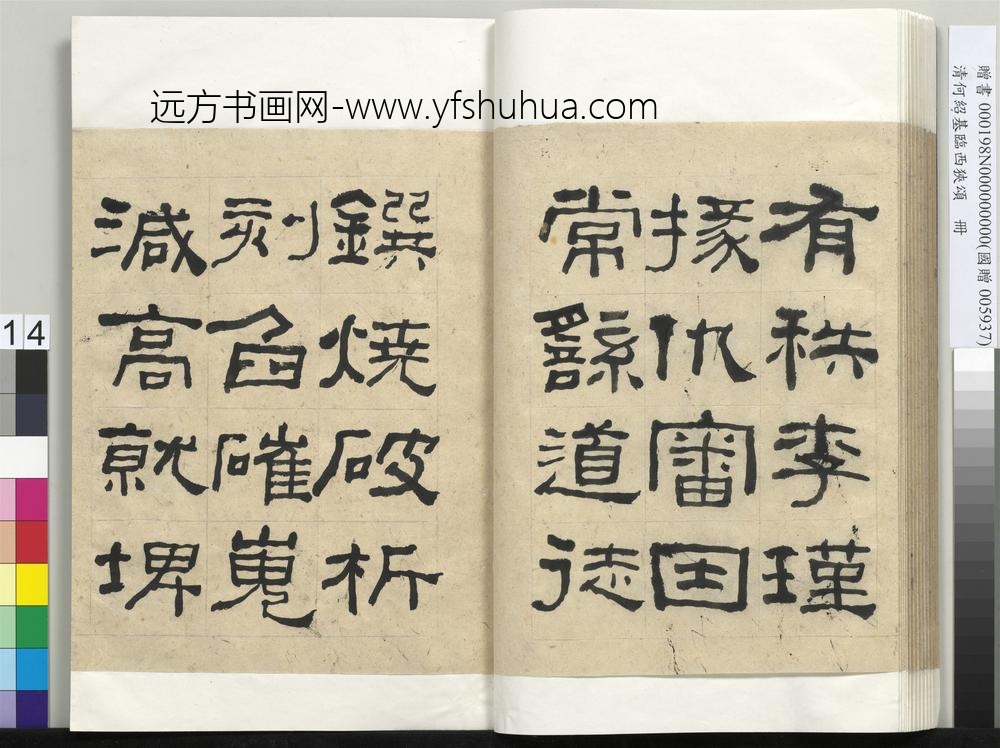 远方书画网-www.yfshuhua.com
贈書 000198N000000000(國贈 005937)
清何紹基臨西狹頌 冊
有秩李瑾
掾仇審因
常繇道徒
鐉燒破析
刻臽磪嵬
減高就埤
14